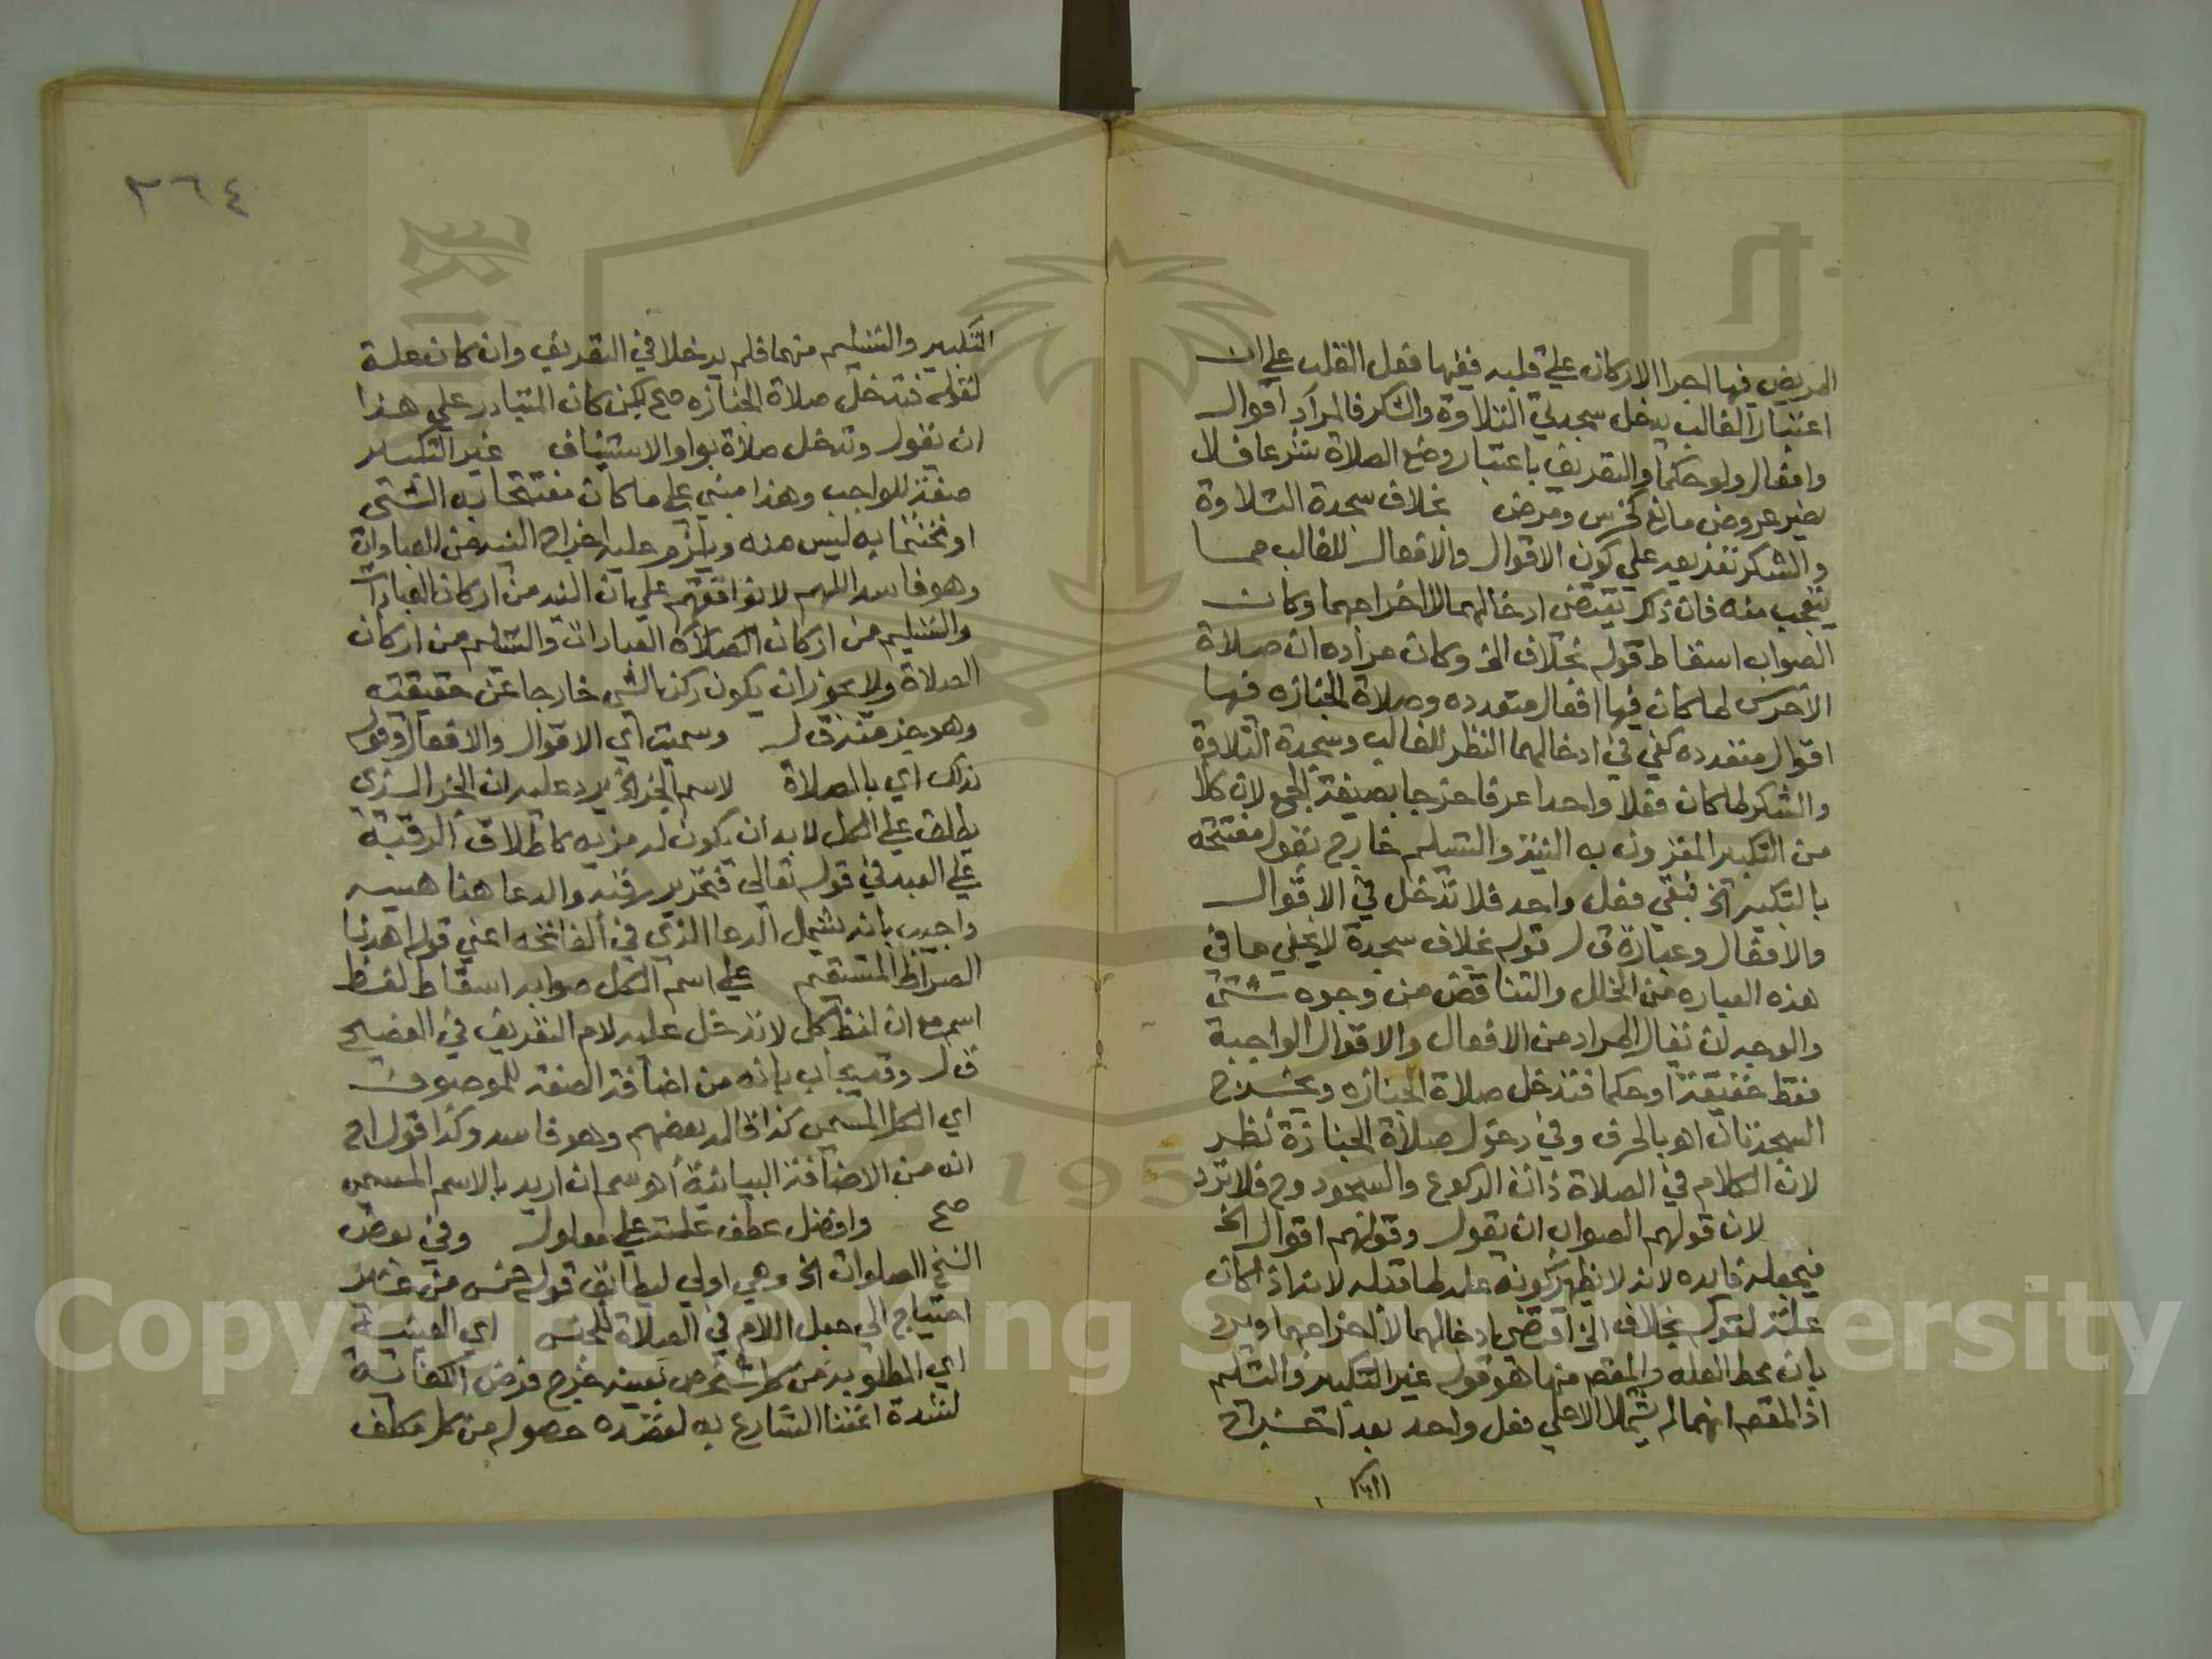 المريض فيها اجرا الاركان علي قلبه ففيها فعل القلب علي ان
اعتبار الغالب يدخل سجدتي التلاوة والشكر فالمراد اقوال
وافعال ولو حكما والتعريف باعتبار وضع الصلاة شرعا فلا
يضر عروض مانع كخرس ومرض بخلاف سجدة التلاوة
والشكر تفريعه علي كون الاقوال والافعال للغالب مما
يتعجب منه فان ذكر يقتضى ادخالهما لا اخراجهما وكان
الصواب اسقاط قوله بخلاف الخ وكان مراده ان صلاة
الاخرس لما كان فيها افعال متعدده وصلاة الجنازه فيها
اقوال متعدده كفي في ادخالهما النظر للغالب وسجدة التلاوة
والشكر لما كان فعلا واحدا عرفا خرجا بصيغة الجمع لان كلا
من التكبير المقرون به النية والتسليم خارج بقوله مفتتحه
بالتكبير الخ فبقي فعل واحد فلا تدخل في الاقوال
والافعال وعبارة ق ل قوله بخلاف سجدة لا يخفي ما في
هذه العباره من الخلل والتناقض من وجوه شتى
والوجه ان يقال المراد من الافعال والاقوال الواجبة
فقط حقيقة او حكما فتدخل صلاة الجنازه ويخرج
السجدتان اهو بالحرف وفي دخول صلاة الجنازة نظر
لان الكلام في الصلاة ذات الركوع والسجود وح فلا ترد
لان قولهم الصواب ان يقول وقولهم اقوال الخ
فيجعله فايده لانه لا يظهر كونه علة لما قبله لانه اذا كان
علة لقوله بخلاف الخ اقتضى ادخالهما لا اخراجهما ويرد
بان محط العله والمقصم منها هو قوله غير التكبير والتسليم
اذ المقصم انهما لم يشملا الا علي فعل واحد بعد اخراج
التك
٣٦٤
التكبير والتسليم منهما فلم يدخلا في التعريف وان كان علة
لقوله فتدخل صلاة الجنازه صح لكن كان المتبادر علي هذا
ان يقول وتدخل صلاة بواو الاستيناف غير التكبير
صفة للواجب وهذا مبني علي ما كان مفتتحا به الشي
او مختتما به ليس منه ويلزم عليه اخراج النيه من العبادات
وهو فاسد اللهم لا نوافقهم علي ان النيه من اركان العبادات
والتسليم من اركان الصلاة العبادات والتسليم من اركان
الصلاة ولا يجوز ان يكون ركن الشي خارجا عن حقيقته
وهو جزء منه ق ل وسميت اي الاقوال والافعال وقوله
بذلك اي بالصلاة لاسم الجزء الخ يرد عليه ان الجزء الذي
يطلق علي الكل لا بد ان يكون له مزيه كاطلاق الرقبة
علي العبد في قوله تعالي فتحرير رقبه والدعا هنا هيييه
واجيب بانه يشمل الدعا الذي في الفاتحه اعني قوله اهدنا
الصراط المستقيم علي اسم الكل صوابه اسقاط لفظ
اسم مع ان لفظ كل لا تدخل عليه لام التعريف في الفصيح
ق ل وقد يجاب بانه من اضافة الصفة للموصوف
اي الكل المسمى كذا قاله بعضهم وهو فاسد وكذا قول اج
انه من الاضافة البيانية اهو سم ان اريد بالاسم المسمى
صح وافضل عطف علة علي معلول وفي بعض
النسخ الصلوات الخ وهي اولي ليطابق قوله خمس من غير
احتياج الي جعل اللام في الصلاة للجنس اي العينية
اي المطلوبة من كل شخص بعينه فخرج فرض الكفاية
لشدة اعتنا الشارع به لقصده حصوله من كل مكلف